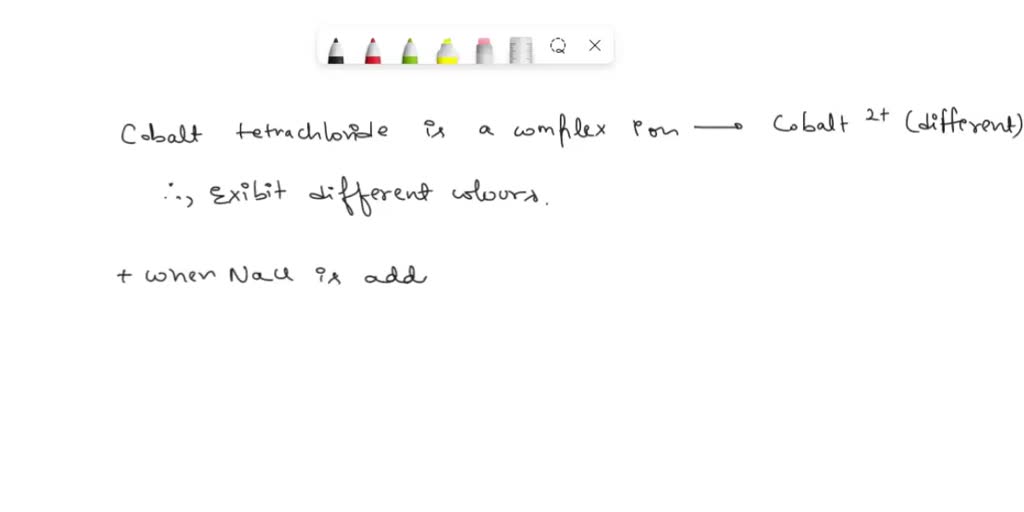 Cobalt tetrachloride is a complex ion → Cobalt 2+ (different)
∴, Exibit different colours.
+ when NaCl is add